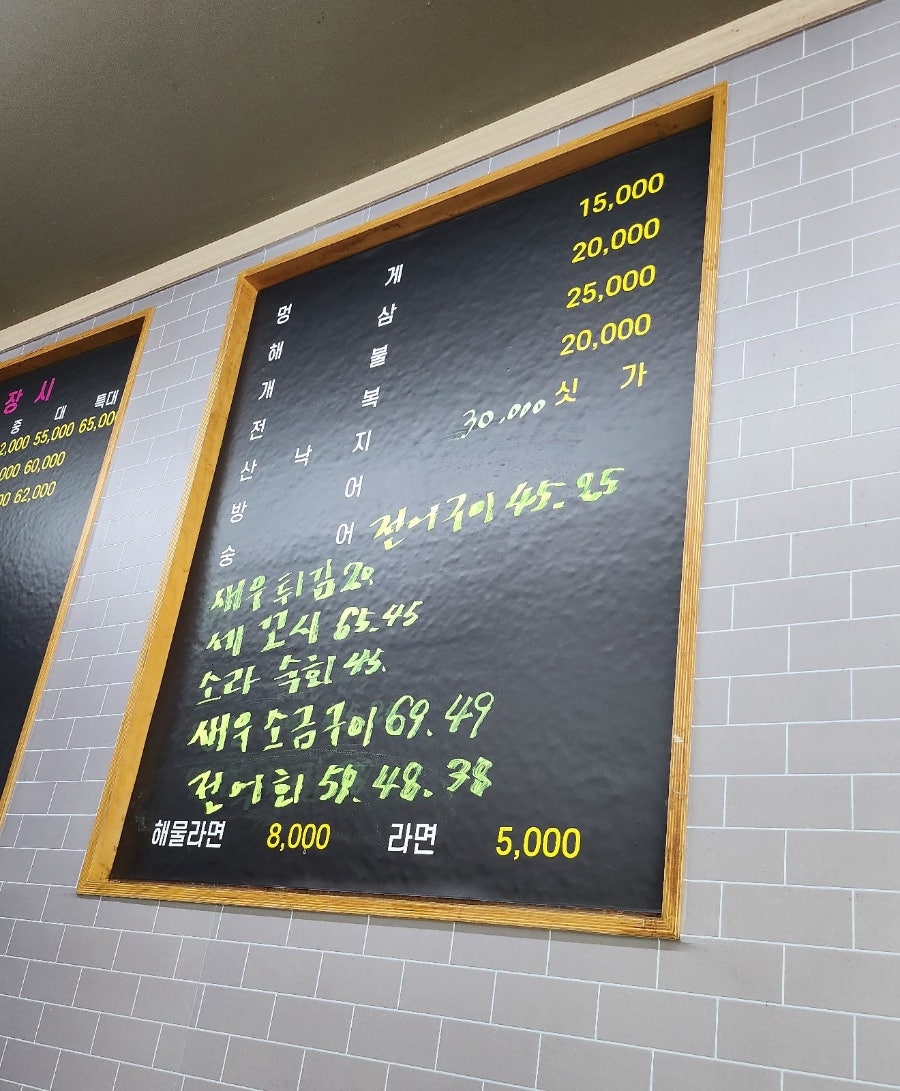 장 시
중 대 특대
2,000 55,000 65,00
000 60,000
00 62,000
멍 게 15,000
해 삼 20,000
개 불 25,000
전 복 20,000
산 낙 지 30,000 싯 가
방 어
숭 어 전어구이 45. 25
새우튀김 20.
세꼬시 65.45
소라 숙회 45.
새우소금구이 69.49
전어회 58.48.38
해물라면 8,000 라면 5,000